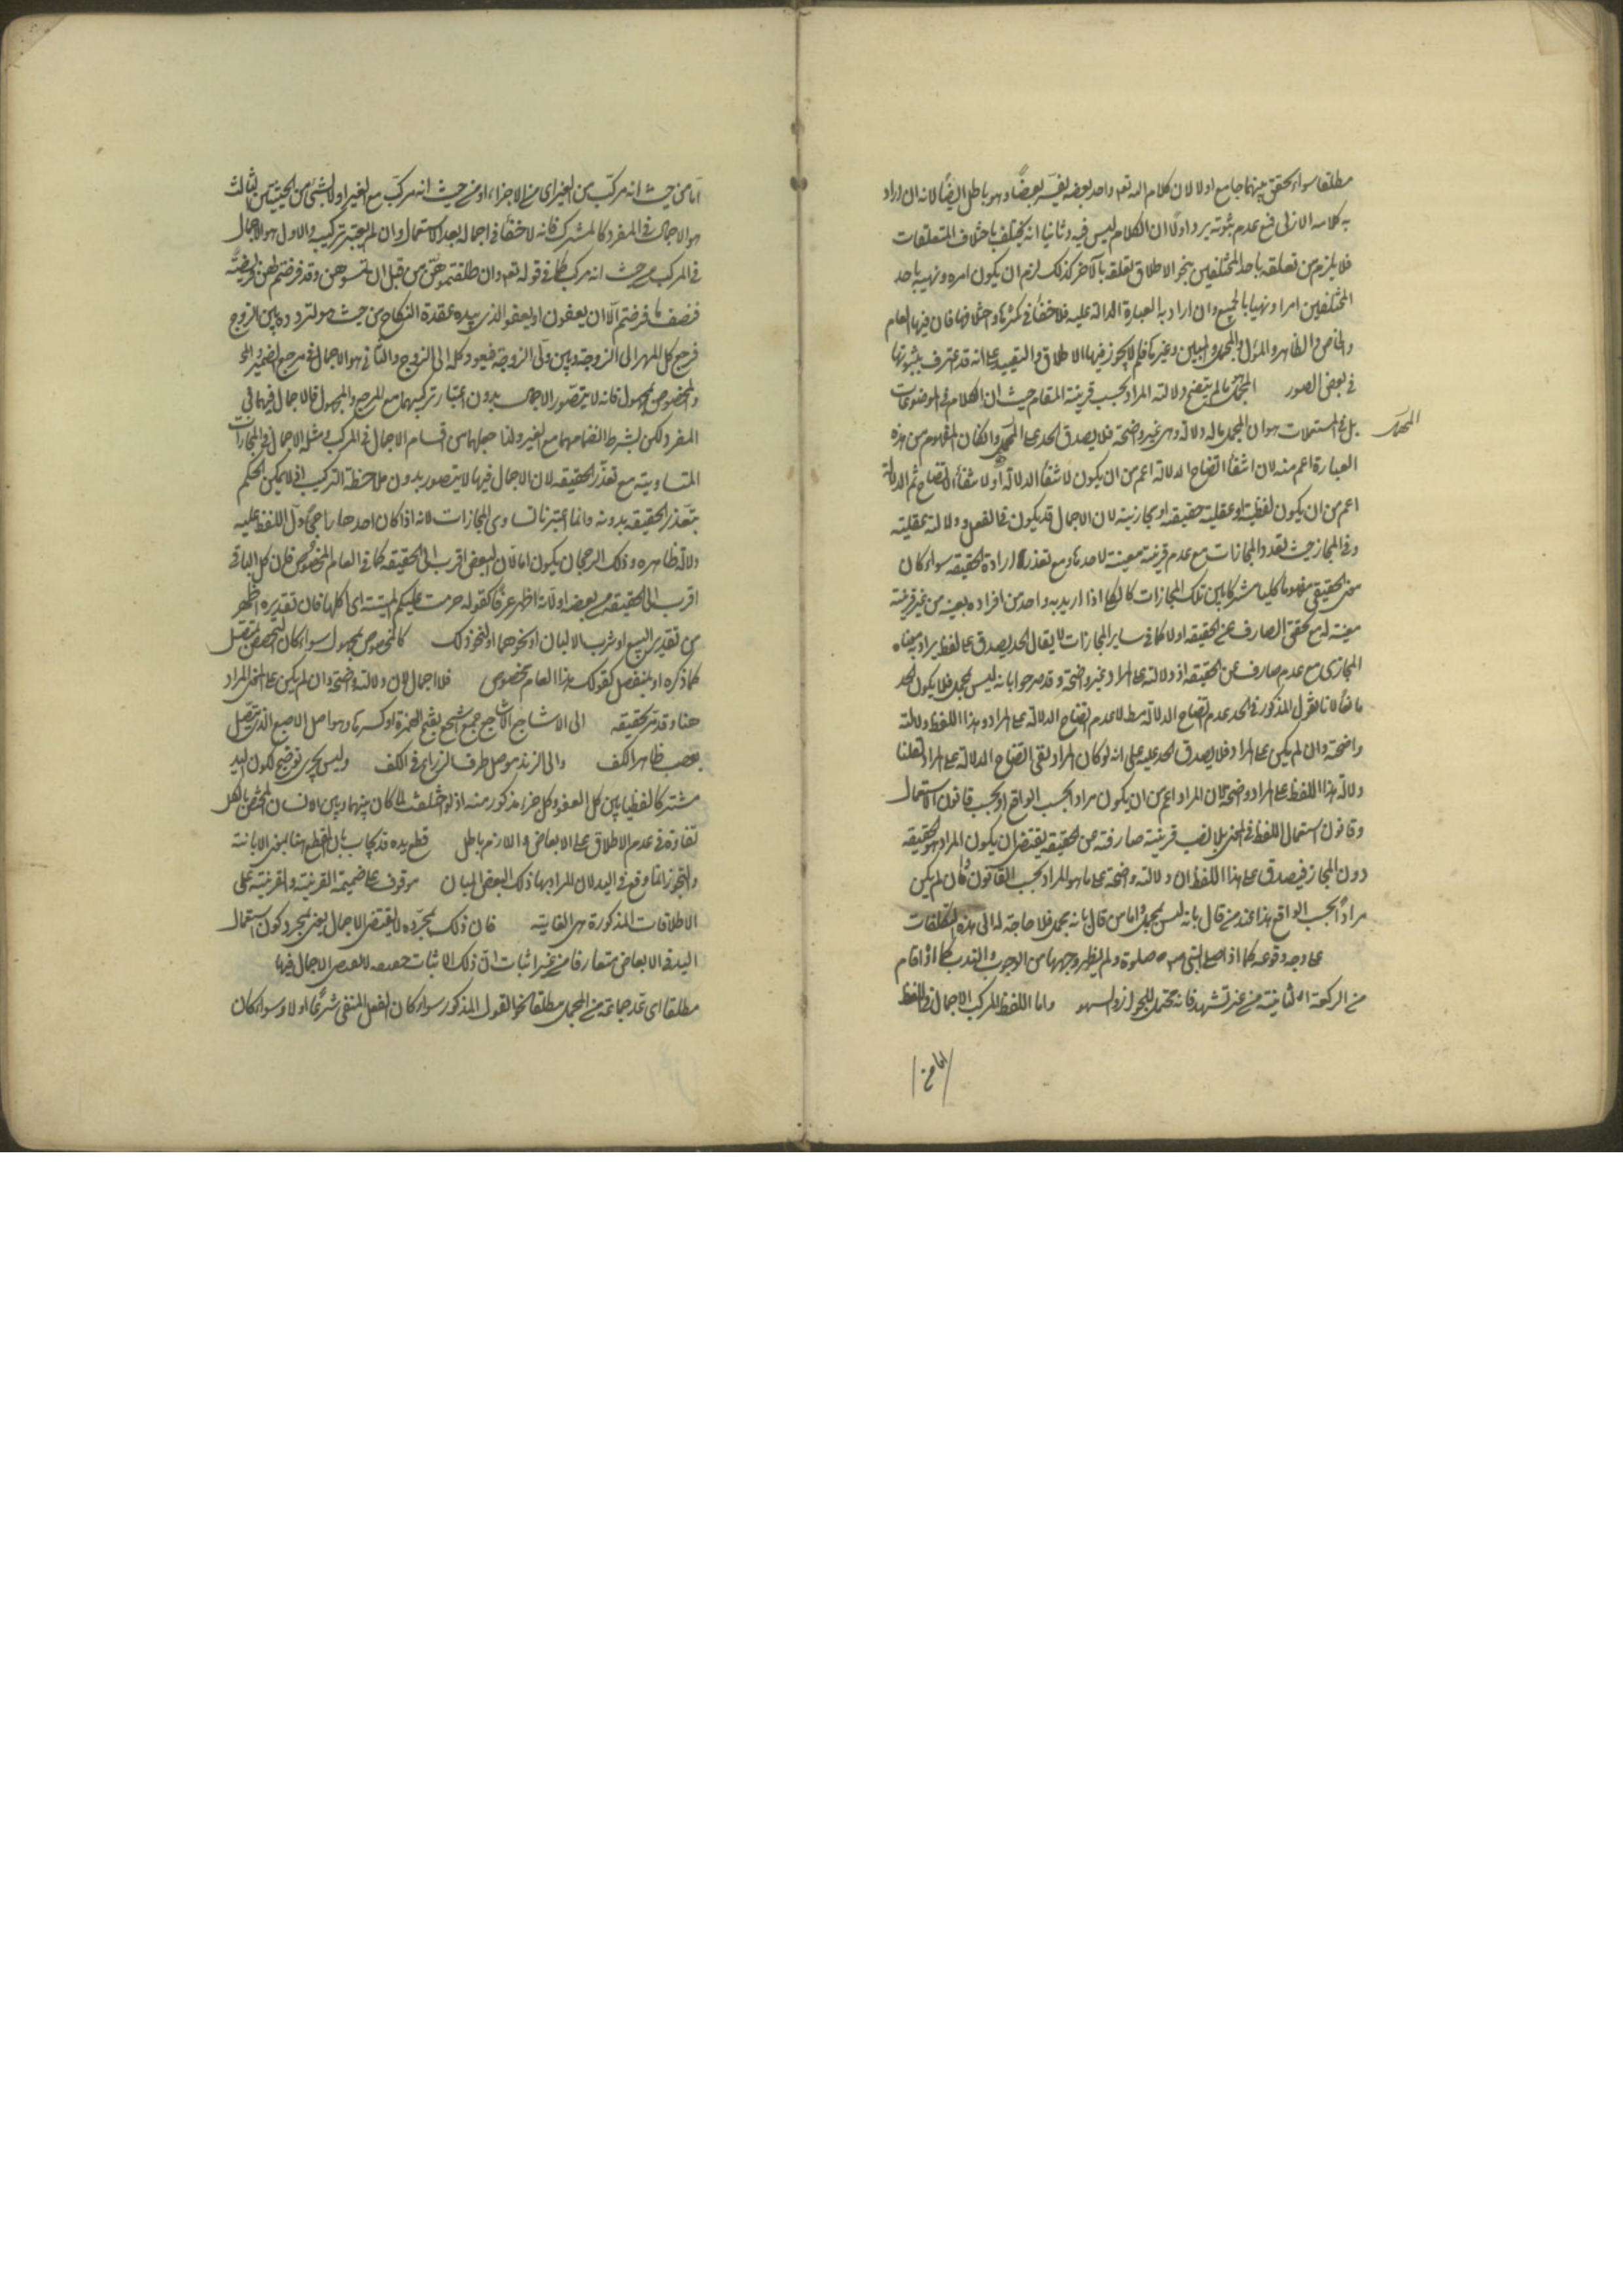 مطلقا سواء تحقق بينهما جامع اولا لان كلام الله تعم واحد بعضه يفسر بعضا وهو باطل ايضا لانه ان اراد
به كلامه الازلى فمع عدم ثبوته يرد اولا ان الكلام ليس فيه وثانيا انه يختلف باختلاف المتعلقات
فلا يلزم من تعلقه باحد المختلفين بنحو الاطلاق تعلقه بالآخر كذلك لزم ان يكون امره ونهيه باحد
المختلفين امرا ونهيا بالجميع وان اراد به العبارة الدالة عليه فلا خفأ فى كثرتها واختلافها فان فيها العام
والخاص والظاهر والمؤل والمجمل والمبين وغيرها فلم لا يجوز فيها الاطلاق والتقييد على انه قد اعترف بثبوتها
فى بعض الصور المجمل هو ما لم يتضح دلالته المراد بحسب قرينة المقام حيث ان الكلام فى الموضوعات
بل فى المستعملات هو ان المجمل ماله دلالة وهى غير واضحة فلا يصدق الحد على المهمل وان كان المفهوم من هذه
المهمل
العبارة اعم منه لان انتفأ اتضاح الدلالة اعم من ان يكون لانتفأ الدلالة او لانتفأ الاتضاح ثم الدلالة
اعم من ان يكون لفظية او عقلية حقيقة او مجازية لان الاجمال قد يكون فى الفعل ودلالته عقلية
وفى المجاز حيث تعدد المجازات مع عدم قرينة معينة لاحدها ومع تعذر ارادة الحقيقة سواء كان
معنى الحقيقى مفهوما كليا مشتركا بين تلك المجازات كالكل اذا اريد به واحد من افراده بعينه من غير قرينة
معينة له مع تحقق الصارف عن الحقيقة اولا كما فى ساير المجازات لا يقال الحد يصدق على لفظ يراد به معناه
المجازى مع عدم صارف عن الحقيقة اذ دلالته على المراد غير واضحة وقد صرحوا بانه ليس بمجمل فلا يكون الحد
مانعا لانا نقول المذكور فى الحد عدم اتضاح الدلالة مطلا عدم اتضاح الدلالة على المراد وهذا اللفظ دلالته
واضحة وان لم يكن على المراد فلا يصدق الحد عليه على انه لو كان المراد نفى اتضاح الدلالة على المراد لقلنا
دلالة هذا اللفظ على المراد واضحة لان المراد اعم من ان يكون مرادا بحسب الواقع او بحسب قانون الاستعمال
وقانون استعمال اللفظ فى المعنى بلا نصب قرينة صارفة عن الحقيقة يقتضى ان يكون المراد هو الحقيقة
دون المجاز فيصدق على هذا اللفظ ان دلالته واضحة على ما هو المراد بحسب القانون وان لم يكن
مرادا بحسب الواقع هذا عند من قال بانه ليس بمجمل واما من قال بانه مجمل فلا حاجة له الى هذه التكلفات
على وجه وقوعه كما اذا صلى النبى صلوة ولم يظهر وجهها من الوجوب والندب كما اذا قام
من الركعة الثانية من غير تشهد فانه محتمل للجواز والسهو واما اللفظ المركب الاجمال فى اللفظ
اما من
اما من حيث انه مركب من الغير اى من الاجزاء او من حيث انه مركب مع الغير او لا لشئ من الحيثيتين الثالث
هو الاجمال فى المفرد كالمشترك فانه لا خفأ فى اجماله بعد الاستعمال وان لم يعتبر تركيب والاول هو الاجمال
فى المركب من حيث انه مركب كما فى قوله تعم وان طلقتموهن من قبل ان تمسوهن وقد فرضتم لهن فريضة
فنصف ما فرضتم الا ان يعفون او يعفو الذى بيده عقدة النكاح من حيث هو لتردده بين الزوج
فرجع كل المهر الى الزوجة وبين ولى الزوجة فيعود كله الى الزوج والثانى هو الاجمال فى مرجع الضمير المجمل
والمخصوص بمجهول فانه لا يتصور الاجمال بدون اعتبار تركيبهما مع المرجع والمجهول فالاجمال فيهما فى
المفرد لكن بشرط انضمامهما مع الغير ولنا جعلهما من اقسام الاجمال فى المركب ومثله الاجمال فى المجازات
المتساوية مع تعذر الحقيقة لان الاجمال فيها لا يتصور بدون ملاحظة التركيب اذ لا يمكن الحكم
بتعذر الحقيقة بدونه وانما اعتبرنا تساوى المجازات لانه اذا كان احدها راجحا دل اللفظ عليه
دلالة ظاهرة وذلك الرجحان يكون اما لان البعض اقرب الى الحقيقة كما فى العام المخصوص فان كل الباقى
اقرب الى الحقيقة من بعضه او لانه اظهر عرفا كقوله حرمت عليكم الميتة اى اكلها فان تقديره اظهر
من تقدير البيع او شرب الالبان او نحوهما او لنحو ذلك كالمخصوص بمجهول سواء كان المخصص متصل
كما ذكره او بمنفصل كقولك هذا العام مخصوص فلا اجمال لان دلالته واضحة وان لم يكن على المعنى المراد
هنا وقد مر تحقيقه الى الاشاجع الاشاجع جمع اشجع بفتح الهمزة او كسرها وهو اصل الاصبع الذى يتصل
بعصب ظاهر الكف والى الزند موصل طرف الذراع فى الكف وليس بحرى توضيح لكون اليد
مشتركا لفظيا بين كل العضو وكل جزء مذكور منه اذ لو كان بينهما وبين الانسان المختص بالكل
تفاوت فى عدم الاطلاق على الابعاض واللازم باطل قطع يده قد يجاب بان القطع هنا بمعنى الابانة
والتجوز انما وقع فى اليد لان المراد بها ذلك البعض المبان موقوف على ضميمة القرينة والقرينة على
الاطلاقات المذكورة هى الغاية فان ذلك بمجرده لا يقتضى الاجمال يعنى بمجرد كون استعمال
اليد فى الابعاض متعارفا من غير اثبات ان ذلك الاثبات حقيقة لا يقتضى الاجمال فيها
مطلقا اى عد جماعة من المجمل مطلقا نحو القول المذكور سواء كان الفعل المنفى شرعيا اولا وسواء كان